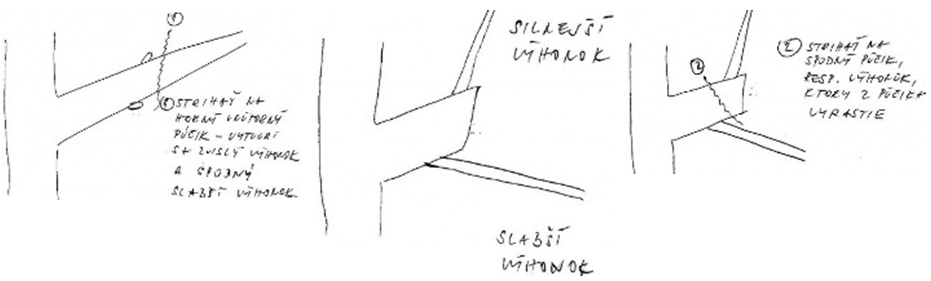 ①
① STRIHAŤ NA
HORNÝ VNÚTORNÝ
PÚČIK – VYTVORÍ
SA ZVISLÝ VÝHONOK
A SPODNÝ
SLABŠÍ VÝHONOK
SILNEJŠÍ
VÝHONOK
SLABŠÍ
VÝHONOK
②
② STRIHAŤ NA
SPODNÝ PÚČIK,
RESP. VÝHONOK,
KTORÝ Z PÚČIKA
VYRASTIE